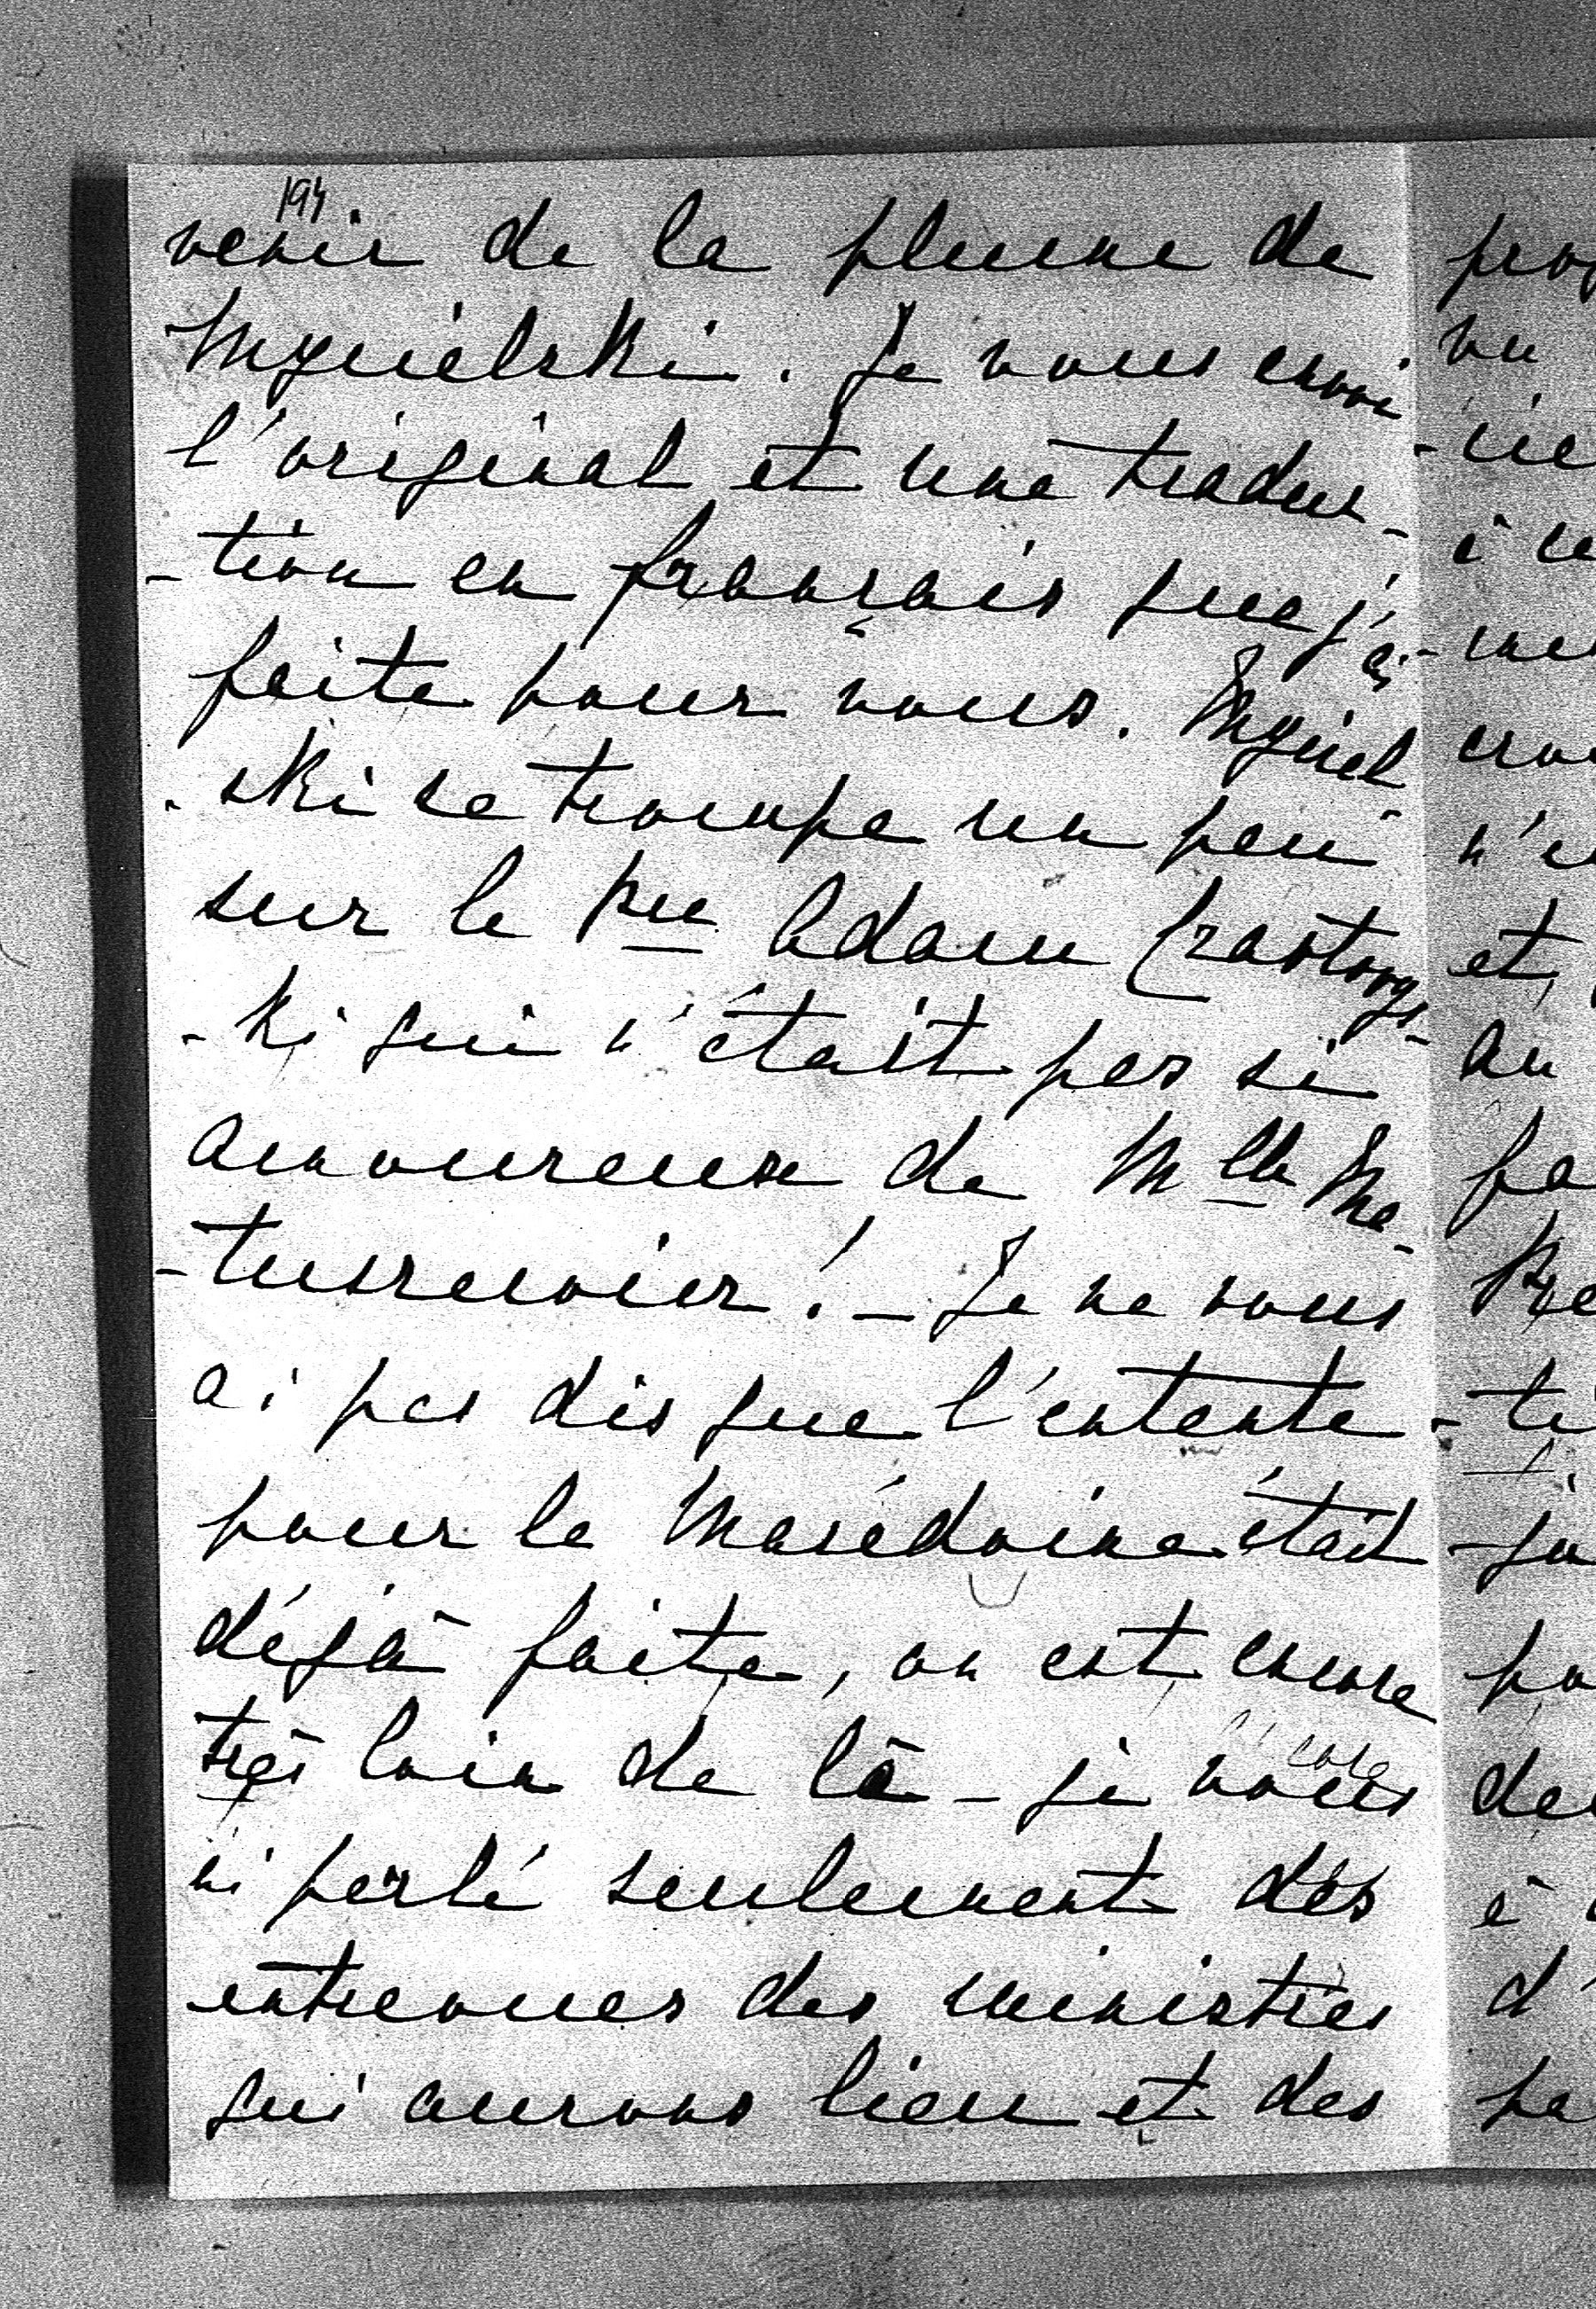 194
venir de la plume de
Mycielski. Je vous envoie
l'original et une traduc-
-tion en français que j'ai
faite pour vous. Myciel
-ski se trompe un peu
sur le Pce Adam Czartorys-
-ki qui n'était pas si
amoureux de Mlle Ma-
-tuszewicz! - Je ne vous
ai pas dis que l'entente
pour la Macédoine était
déjà faite, on est encore
très loin de là - je vous
ai parlé seulement des
entrevues des ministres
qui aurons lieu et des